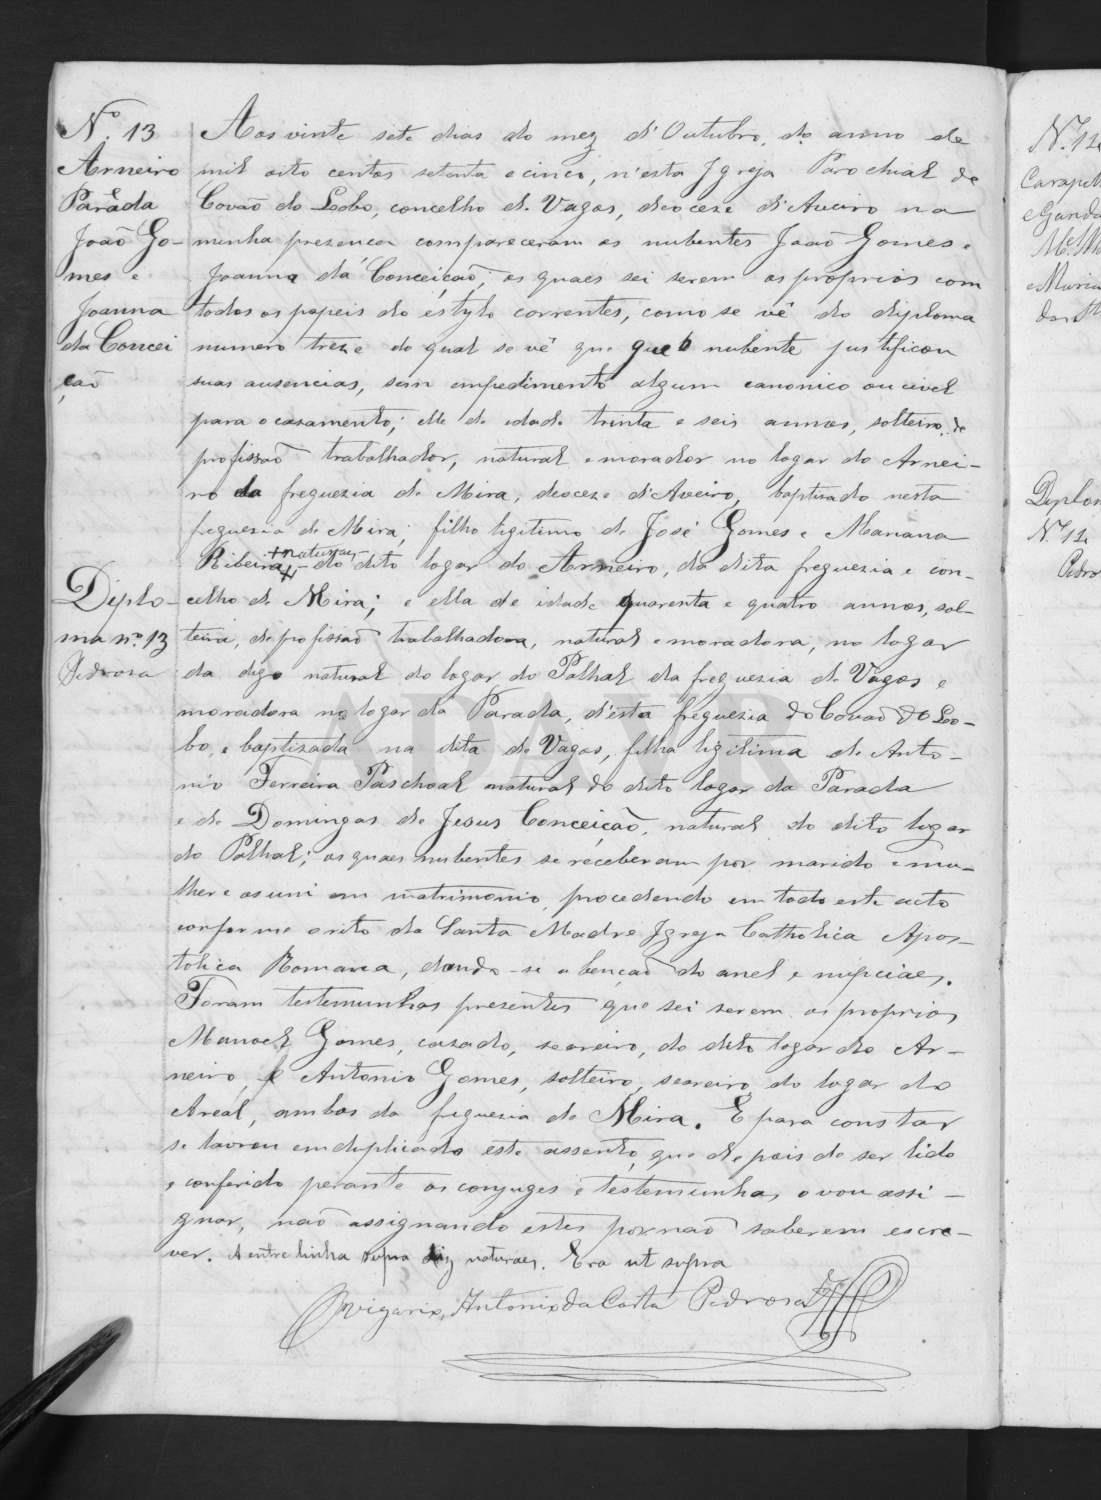 N.º 13
Arneiro
e
Parada
João Go-
mes e
Joanna
da Concei
ção
Aos vinte sete dias do mez d'Outubro, do anno de
mil oito centos setenta e cinco, n'esta Igreja Parochial de
Covão do Lobo, concelho de Vagos, diocese d'Aveiro na
minha presença compareceram os nubentes João Gomes e
Joanna da Conceição, os quaes sei serem os proprios com
todos os papeis do estylo correntes, como se vê do diploma
numero treze do qual se vê que que o nubente justificou
suas ausencias, sem impedimento algum canonico ou civel
para o casamento; elle de idade trinta e seis annos, solteiro, de
profissão trabalhador, natural e morador no logar do Arnei-
ro da freguezia de Mira, diocese d'Aveiro, baptisado nesta
freguezia de Mira, filho legitimo de José Gomes e Marianna
naturaes
Ribeira, do dito logar do Arneiro, da dita freguezia e con-
celho de Mira; e ella de idade quarenta e quatro annos, sol-
teira, de profissão trabalhadora, natural e moradora, no logar
da digo natural do logar do Palhal da freguezia de Vagos e
moradora no logar da Parada, d'esta freguezia do Covão do Lo-
bo, e baptizada na dita de Vagos, filha legitima de Anto-
nio Ferreira Paschoal natural do dito logar da Parada
e de Domingas de Jesus Conceição, natural do dito logar
do Palhal; os quaes nubentes se receberam por marido e mu-
lher e os uni em matrimonio, procedendo em todo este acto
conforme o rito da Santa Madre Igreja Catholica Apos-
tolica Romana, dando-se a benção do anel e nupciaes.
Foram testemunhas presentes que sei serem os proprios
Manoel Gomes, casado, seareiro, do dito logar do Ar-
neiro, e Antonio Gomes, solteiro, seareiro, do logar do
Areal, ambos da freguezia de Mira. E para constar
se lavrou em duplicado este assento, que depois de ser lido
e conferido perante os conjuges e testemunhas, o vou assi-
gnar, não assignando estes por não saberem escre-
ver. A entrelinha supra diz naturaes. Era ut supra
O vigario, Antonio da Costa Pedrosa
Diplo-
ma nº 13
Pedrosa
ADAVR
Nº 12
Diplom
Nº 12
Pedro